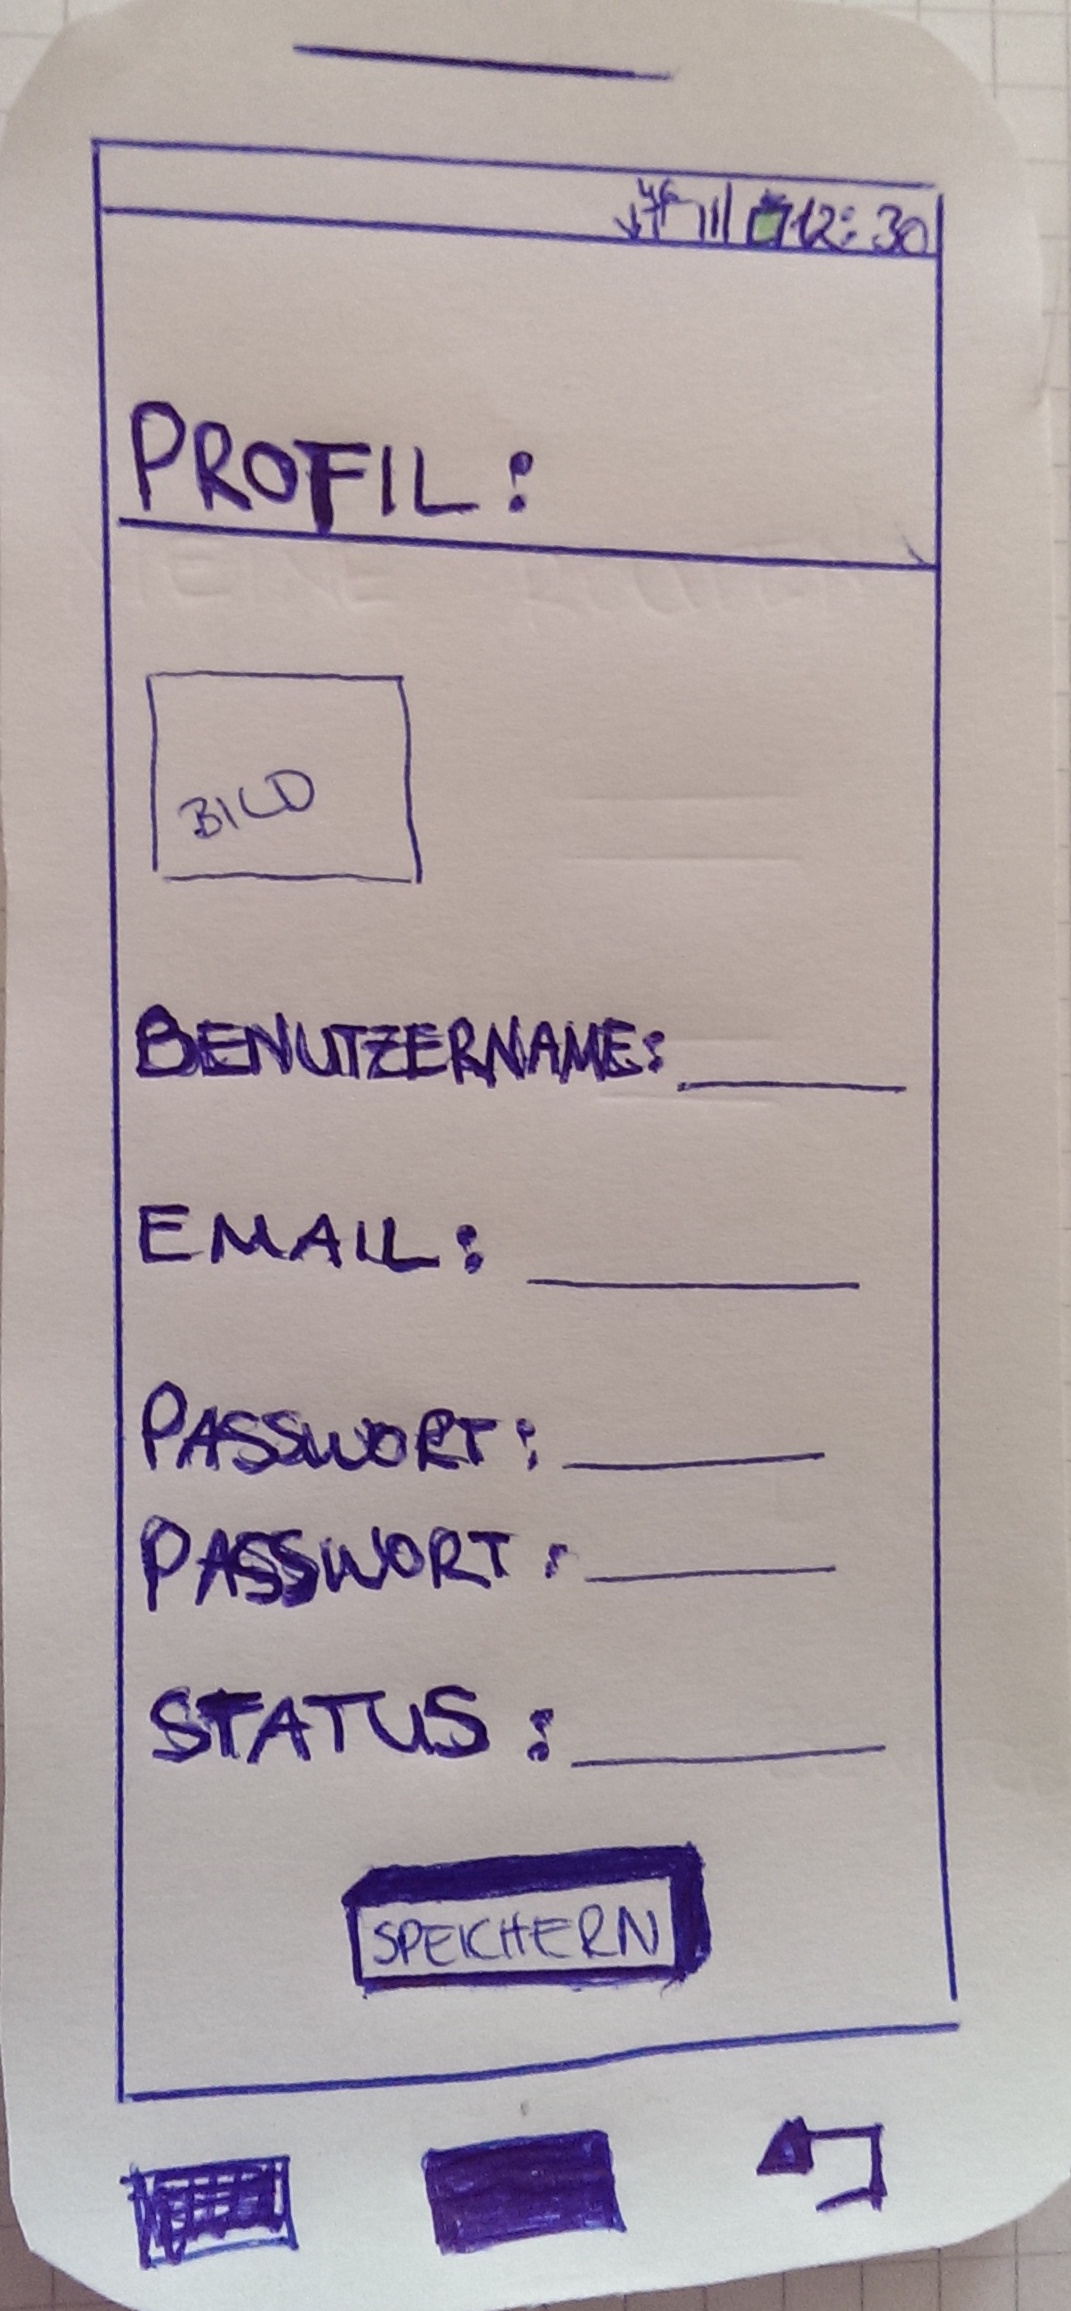 4G 12:30
PROFIL:
MEINE ROUTEN
BILD
BENUTZERNAME:
EMAIL:
PASSWORT:
PASSWORT:
STATUS:
SPEICHERN